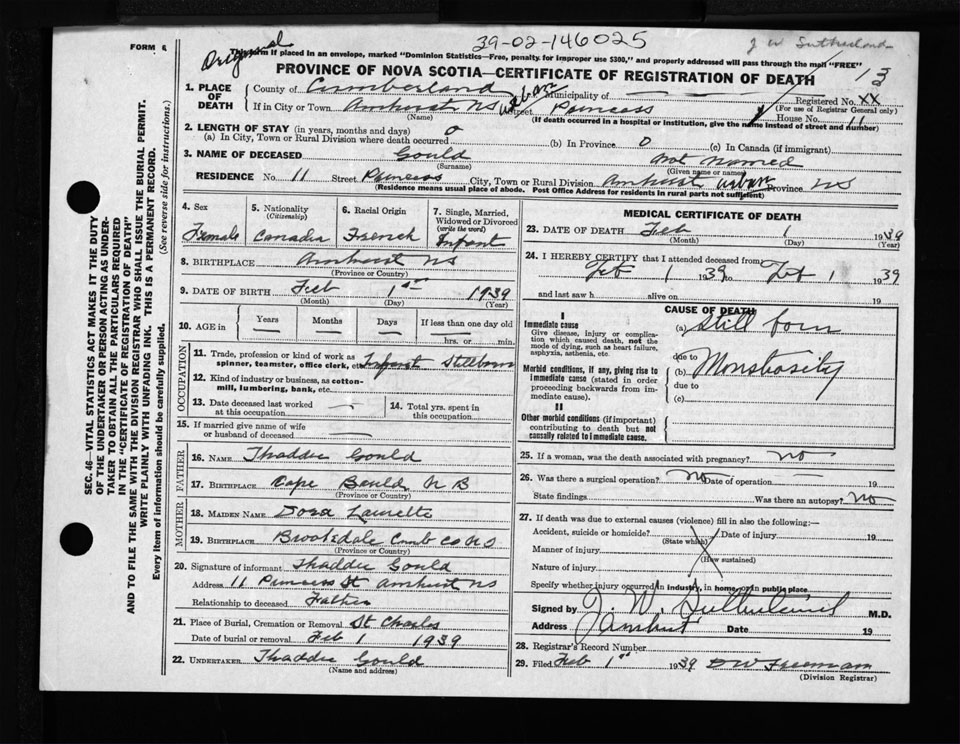 39-02-146025
J W Sutherland
FORM 6
Original
This form if placed in an envelope, marked "Dominion Statistics—Free, penalty for improper use $300," and properly addressed will pass through the mail "FREE"
PROVINCE OF NOVA SCOTIA—CERTIFICATE OF REGISTRATION OF DEATH
13
1. PLACE OF DEATH
County of Cumberland Municipality of — —
Registered No. XX
(For use of Registrar General only)
If in City or Town Amherst NS urban Street Princess House No. 11
(Name) (If death occurred in a hospital or institution, give the name instead of street and number)
2. LENGTH OF STAY (in years, months and days) 0
(a) In City, Town or Rural Division where death occurred (b) In Province 0 (c) In Canada (if immigrant)
3. NAME OF DECEASED Gould not named
(Surname) (Given name or names)
RESIDENCE No. 11 Street Princess City, Town or Rural Division Amherst urban Province NS
(Residence means usual place of abode. Post Office Address for residents in rural parts not sufficient)
4. Sex
Female
5. Nationality
(Citizenship)
Canadia
6. Racial Origin
French
7. Single, Married, Widowed or Divorced
(write the word)
Infant
8. BIRTHPLACE Amherst NS
(Province or Country)
9. DATE OF BIRTH Feb 1st 1939
(Month) (Day) (Year)
10. AGE in Years Months Days If less than one day old
— — — hrs. or min.
OCCUPATION
11. Trade, profession or kind of work as spinner, teamster, office clerk, etc. Infant Stillborn
12. Kind of industry or business, as cotton-mill, lumbering, bank, etc.
13. Date deceased last worked at this occupation —
14. Total yrs. spent in this occupation
15. If married give name of wife or husband of deceased —
FATHER
16. NAME Thaddie Gould
17. BIRTHPLACE Cape Bauld N B
(Province or Country)
MOTHER
18. MAIDEN NAME Dora Laurette
19. BIRTHPLACE Brookdale Cumb co NS
(Province or Country)
20. Signature of informant Thaddie Gould
Address 11 Princess St Amherst NS
Relationship to deceased Father
21. Place of Burial, Cremation or Removal St Charles
Date of burial or removal Feb 1 1939
22. UNDERTAKER Thaddie Gould
(Name and address)
MEDICAL CERTIFICATE OF DEATH
23. DATE OF DEATH Feb 1 1939
(Month) (Day) (Year)
24. I HEREBY CERTIFY that I attended deceased from
Feb 1 1939 to Feb 1 1939
and last saw h alive on 19
CAUSE OF DEATH
I
Immediate cause
Give disease, injury or complication which caused death, not the mode of dying, such as heart failure, asphyxia, asthenia, etc.
(a) Still born
due to
Morbid conditions, if any, giving rise to immediate cause (stated in order proceeding backwards from immediate cause).
(b) Monstrosity
due to
(c)
II
Other morbid conditions (if important) contributing to death but not causally related to immediate cause.
25. If a woman, was the death associated with pregnancy? no
26. Was there a surgical operation? No Date of operation 19
State findings Was there an autopsy? No
27. If death was due to external causes (violence) fill in also the following:—
Accident, suicide or homicide? Date of injury 19
(State which)
Manner of injury
(How sustained)
Nature of injury
Specify whether injury occurred in industry, in home, or in public place
Signed by J. W. Sutherland M.D.
Address Amherst Date 19
28. Registrar's Record Number
29. Filed Feb 1st 1939 DW Freeman
(Division Registrar)
SEC. 46—VITAL STATISTICS ACT MAKES IT THE DUTY
OF THE UNDERTAKER OR PERSON ACTING AS UNDER-
TAKER TO OBTAIN ALL THE PARTICULARS REQUIRED
IN THE "CERTIFICATE OF REGISTRATION OF DEATH"
AND TO FILE THE SAME WITH THE DIVISION REGISTRAR WHO SHALL ISSUE THE BURIAL PERMIT.
WRITE PLAINLY WITH UNFADING INK. THIS IS A PERMANENT RECORD.
Every item of information should be carefully supplied. (See reverse side for instructions.)